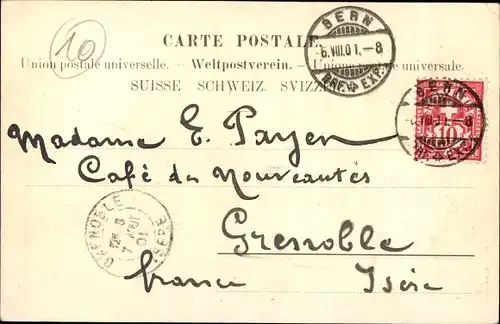 10
BERN
6.VIII.01.–8
BRF. EXP.
CARTE POSTALE.
Union postale universelle. – Weltpostverein. – Unione postale universale.
SUISSE SCHWEIZ. SVIZZERA
BERN
6.VIII.01.–8
BRF. EXP.
10
Madame E. Payen
Café des Nouveautés
Grenoble
france Isère
GRENOBLE
ISÈRE
7 AOUT
01